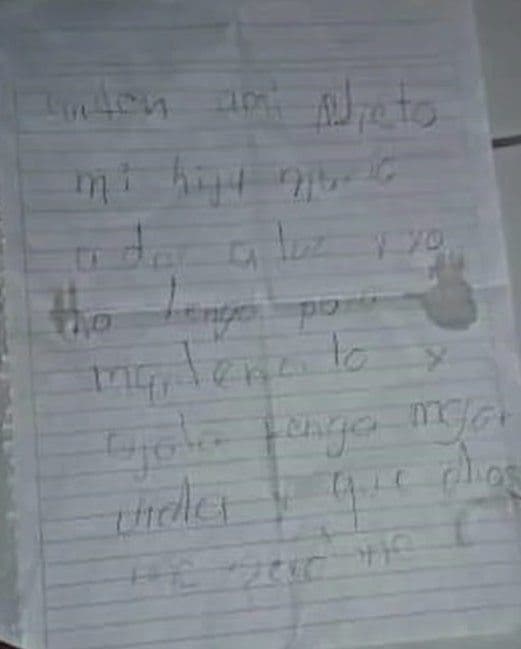 cuiden ami Nieto
mi hija
a dar a luz y yo
no tengo para
mantenerlo y
ojala tenga mejor
vida y que dios
me